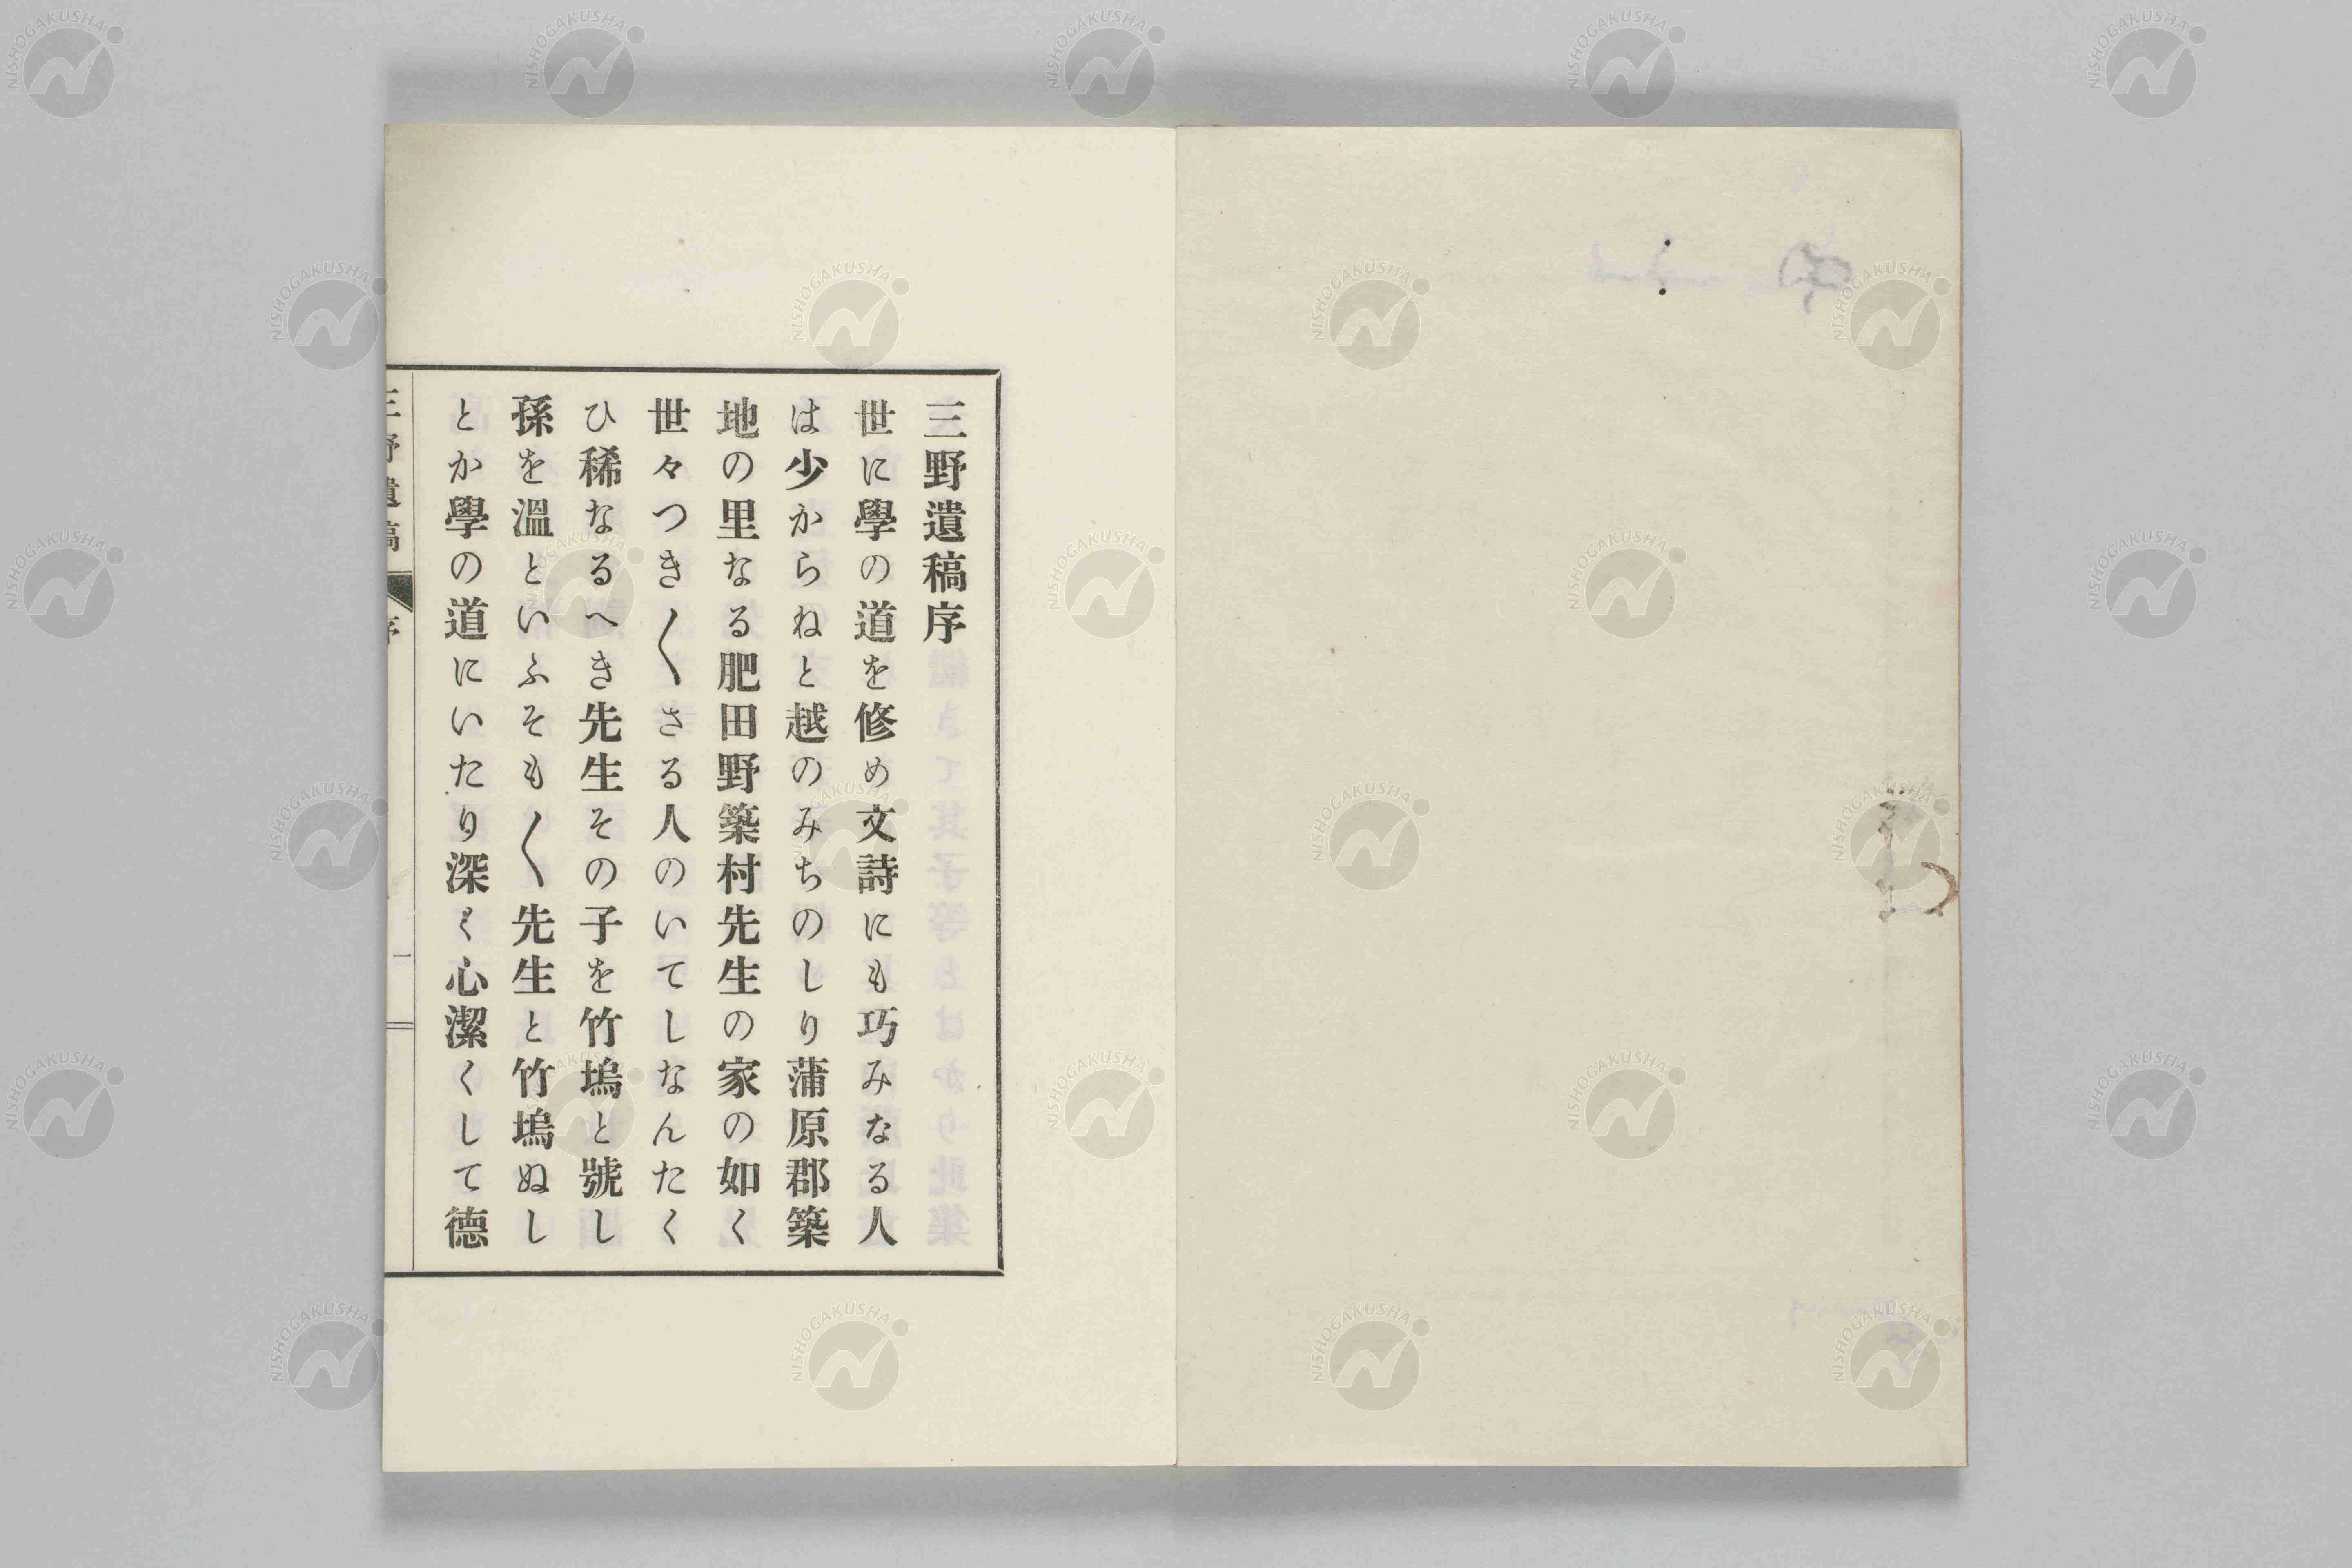 三野遺稿序
世に學の道を修め文詩にも巧みなる人
は少からねと越のみちのしり蒲原郡築
地の里なる肥田野築村先生の家の如く
世々つき〱さる人のいてしなんたく
ひ稀なるへき先生その子を竹塢と號し
孫を溫といふそも〱先生と竹塢ぬし
とか學の道にいたり深く心潔くして德
三野遺稿
序
一
NISHOGAKUSHA